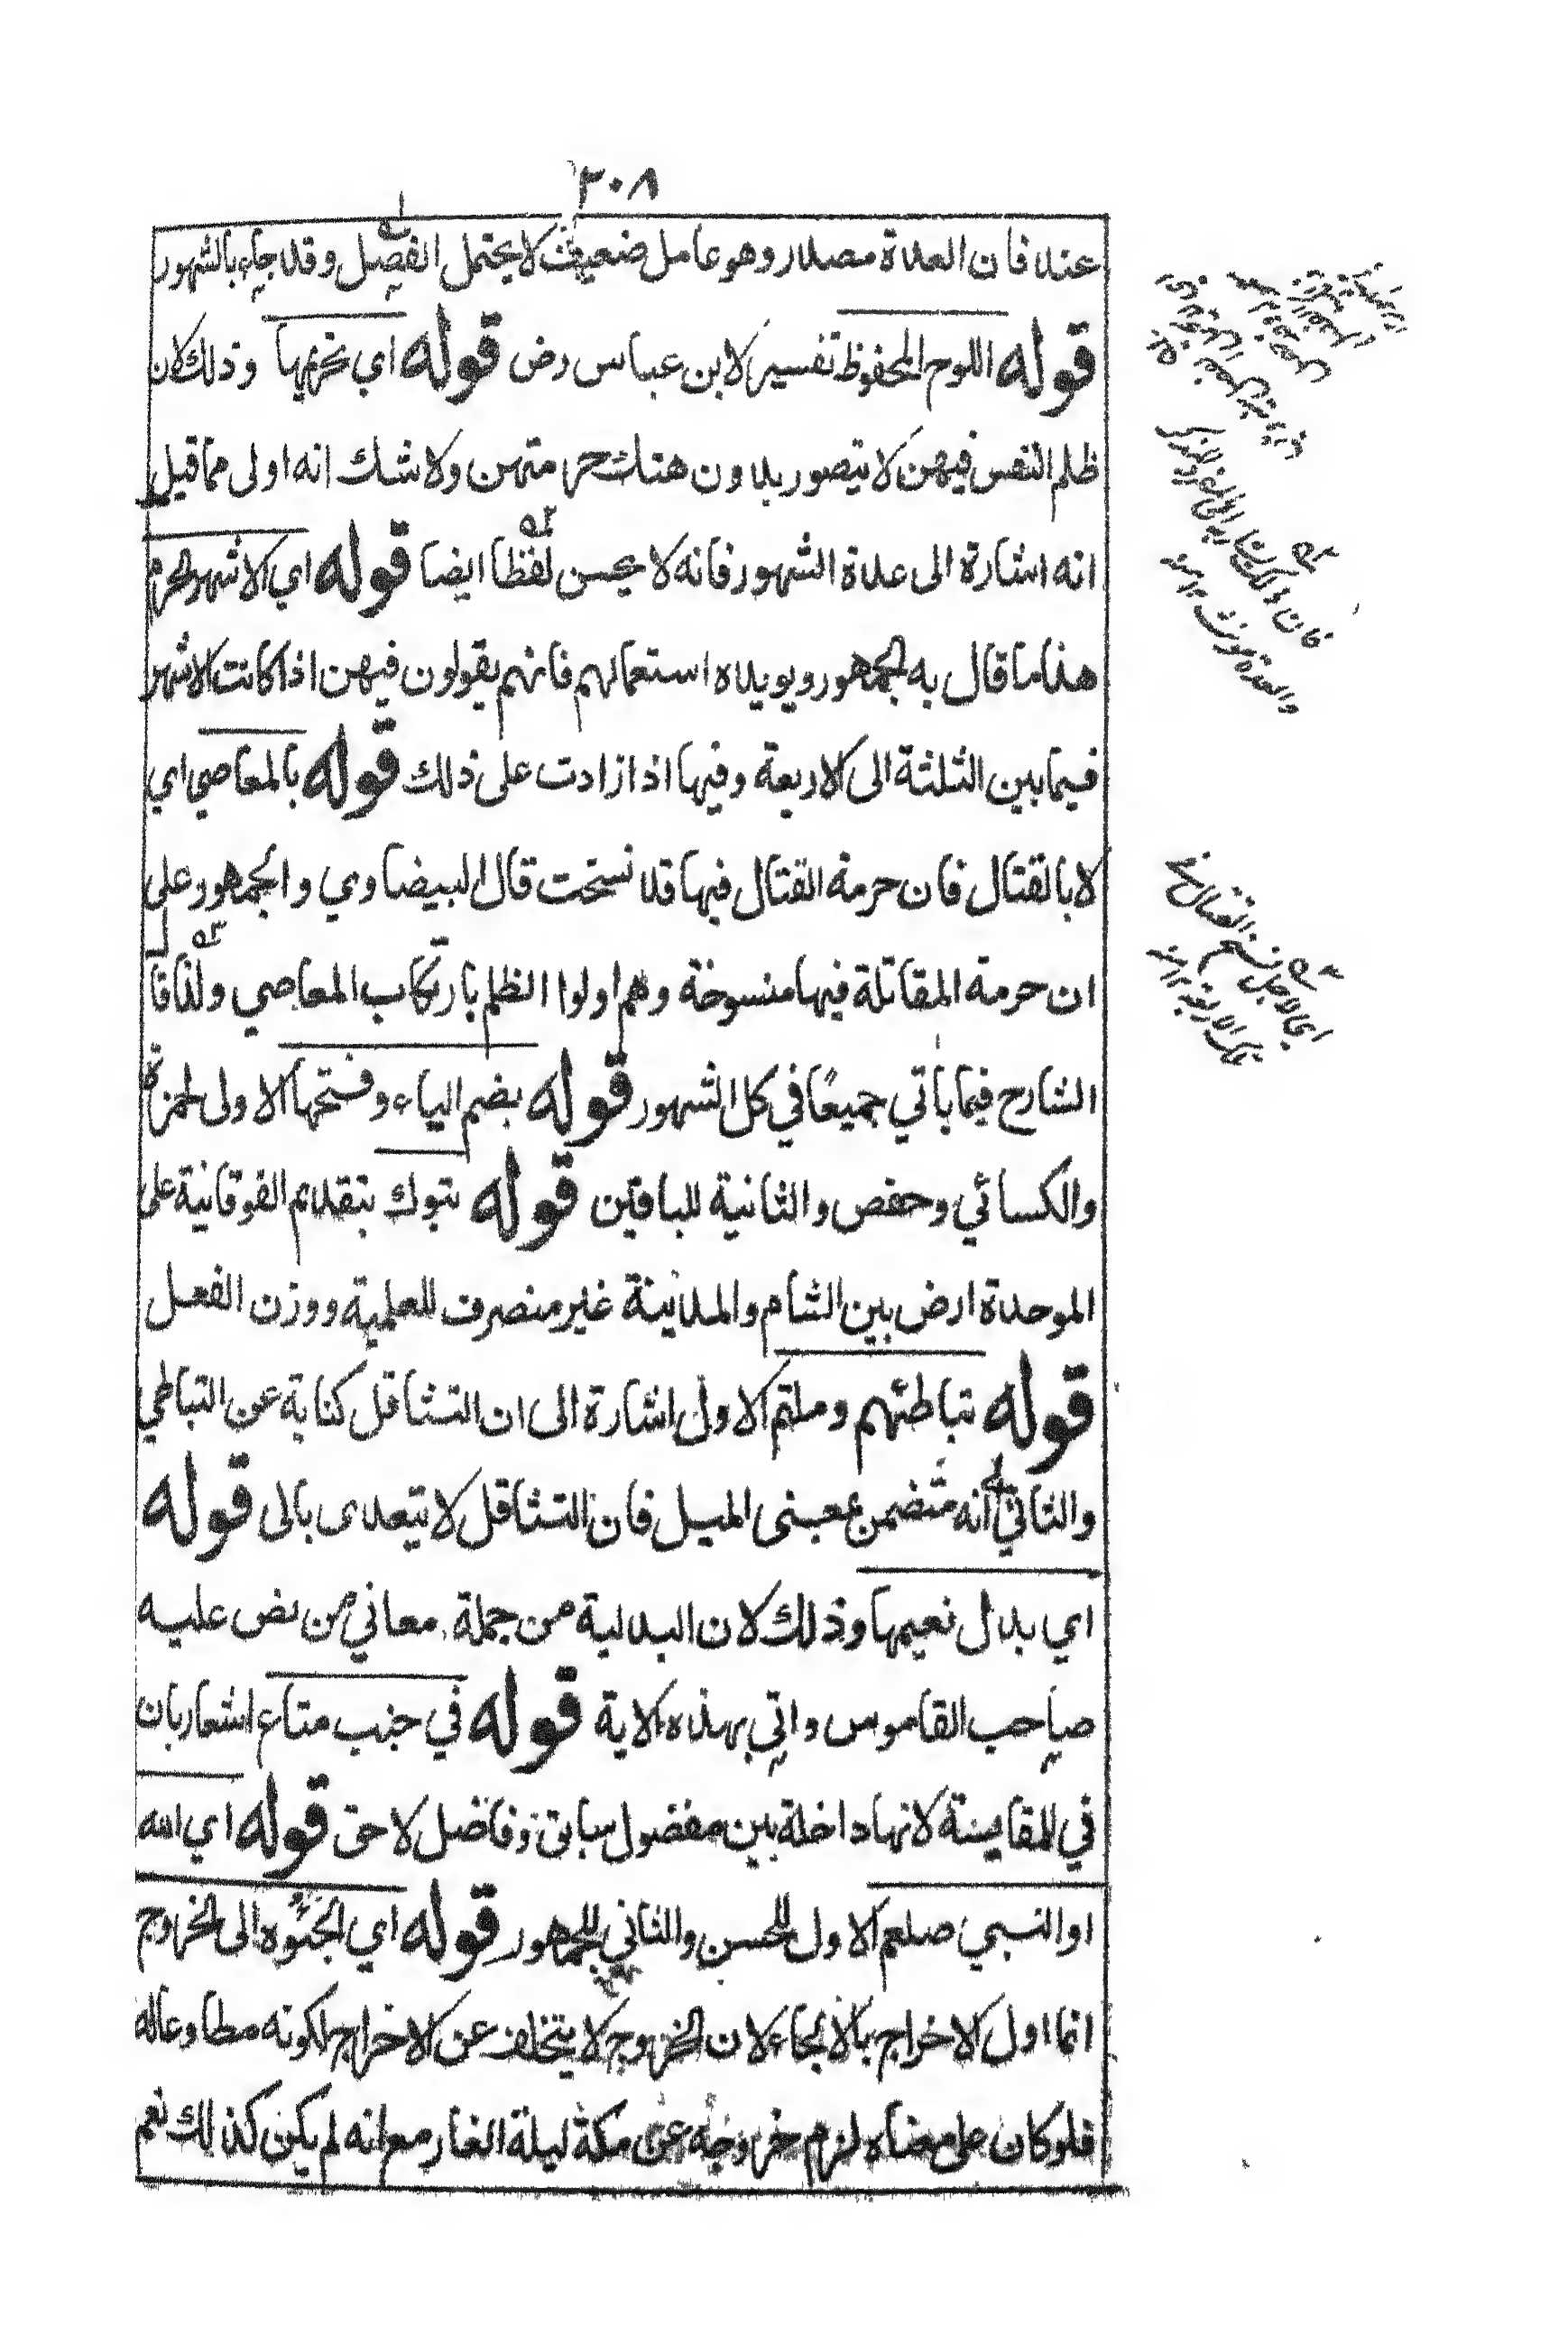 ٣٠٨
عند فان العدة مصدر وهو عامل ضعيف لا يحتمل الفصل وقد جاء بالشهور
قوله اللوح المحفوظ تفسير لابن عباس رض قوله اي تحريمها وذلك لان
ظلم النفس فيهن لا يتصور بدون هتك حرمتهن ولا شك انه اولى مما قيل
انه اشارة الى عدة الشهور فانه لا يحسن لفظا ايضا قوله اي الاشهر الحرم
هذا ما قال به الجمهور ويويده استعمالهم فانهم يقولون فيهن اذا كانت الاشهر
فيما بين الثلثة الى الاربعة وفيها اذا زادت على ذلك قوله بالمعاصي اي
لا بالقتال فان حرمة القتال فيها قد نسخت قال البيضاوي والجمهور على
ان حرمة المقاتلة فيها منسوخة وهم اولوا الظلم بارتكاب المعاصي ولذا قا
الشارح فيما ياتي جميعًا في كل الشهور قوله بضم الياء وفتحها الاولى لحمزة
والكسائي وحفص والثانية للباقين قوله بتبوك بتقديم الفوقانية على
الموحدة ارض بين الشام والمدينة غير منصرف للعلمية ووزن الفعل
قوله تباطئهم وملتم الاول اشارة الى ان التثاقل كناية عن التباطي
والثاني الى انه متضمن بمعنى الميل فان التثاقل لا يتعدى بالى قوله
اي بدل نعيمها وذلك لان البدلية من جملة معاني من نص عليه
صاحب القاموس واتي بهذه الاية قوله في جنب متاع اشعار بان
في للمقايسة لانها داخلة بين مفضول سابق وفاضل لاحق قوله اي الله
او النبي صلعم الاول للحسن والثاني للجمهور قوله اي الجئوه الى الخروج
انما اول الاخراج بالالجاء لان الخروج لا يتخلف عن الاخراج لكونه مطاوعا له
فلو كان على معناه لزم خروجه عن مكة ليلة الغار مع انه لم يكن كذلك نعم